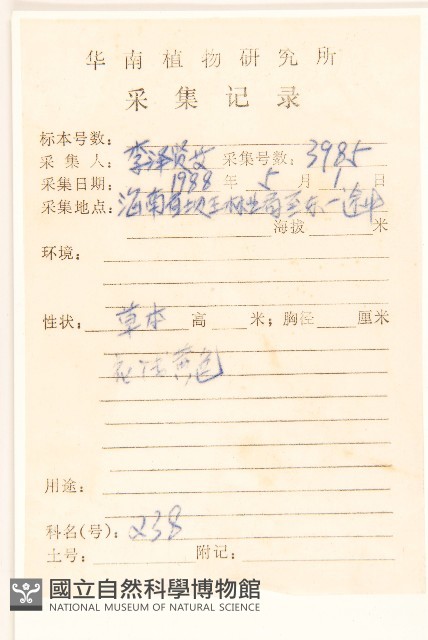 华南植物研究所
采集记录
标本号数：
采集人：李泽贤 采集号数：3985
采集日期：1988年5月1日
采集地点：海南 坝王林业局至东一途中
海拔 米
环境：
性状：草本 高 米；胸径 厘米
花 黄色
用途：
科名(号)：238
土号： 附记：
國立自然科學博物館
NATIONAL MUSEUM OF NATURAL SCIENCE